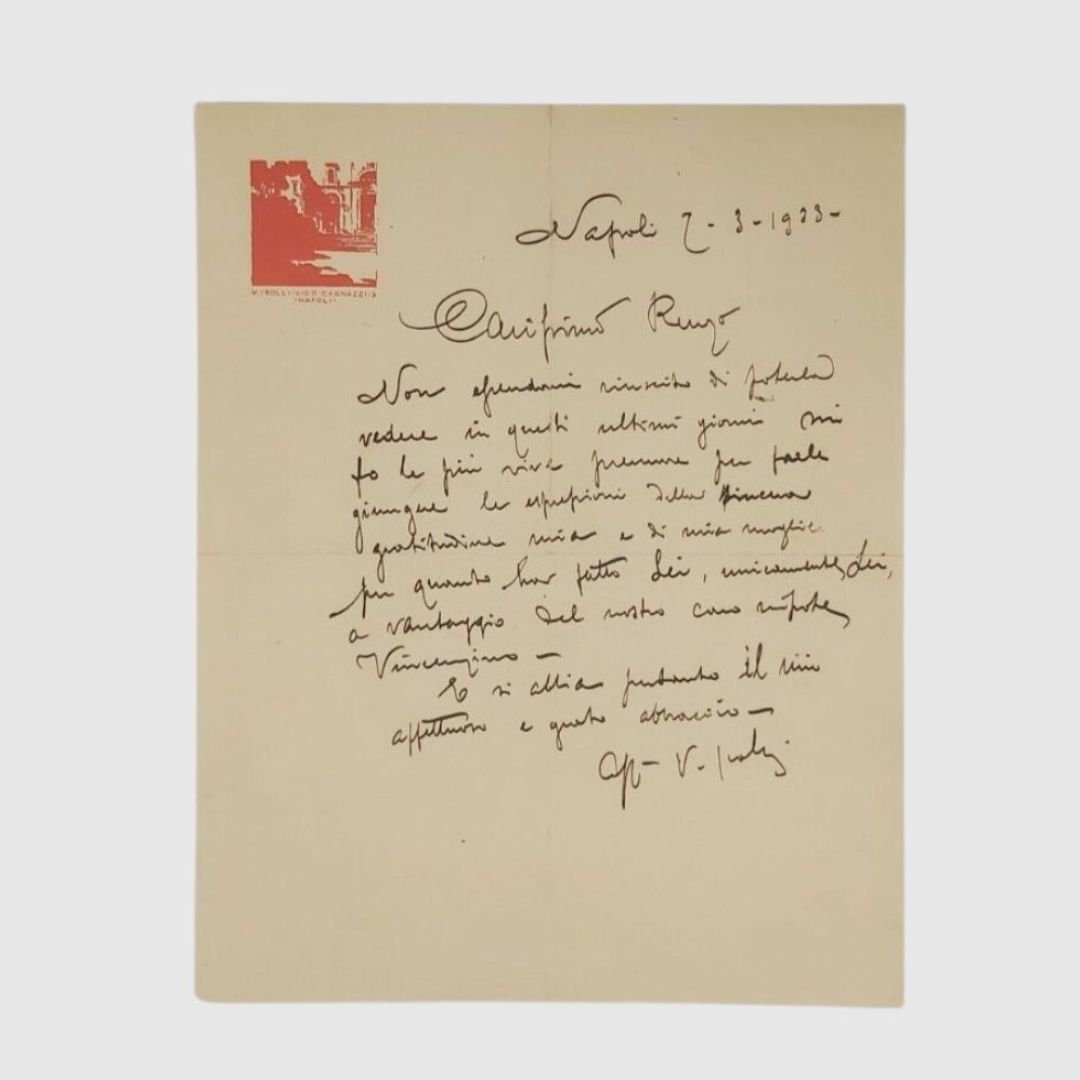 V. IROLLI · VICO CAGNAZZI · 3
· NAPOLI ·
Napoli 7 - 3 - 1933 -
Carissimo Renzo
Non essendomi riuscito di poterla
vedere in questi ultimi giorni mi
fo le più vive premure per farle
giungere le espressioni della sincera
gratitudine mia e di mia moglie
per quanto ha fatto Lei, unicamente Lei,
a vantaggio del nostro caro nipote
Vincenzino —
E si abbia pertanto il mio
affettuoso e grato abbraccio —
Aff - V. Irolli